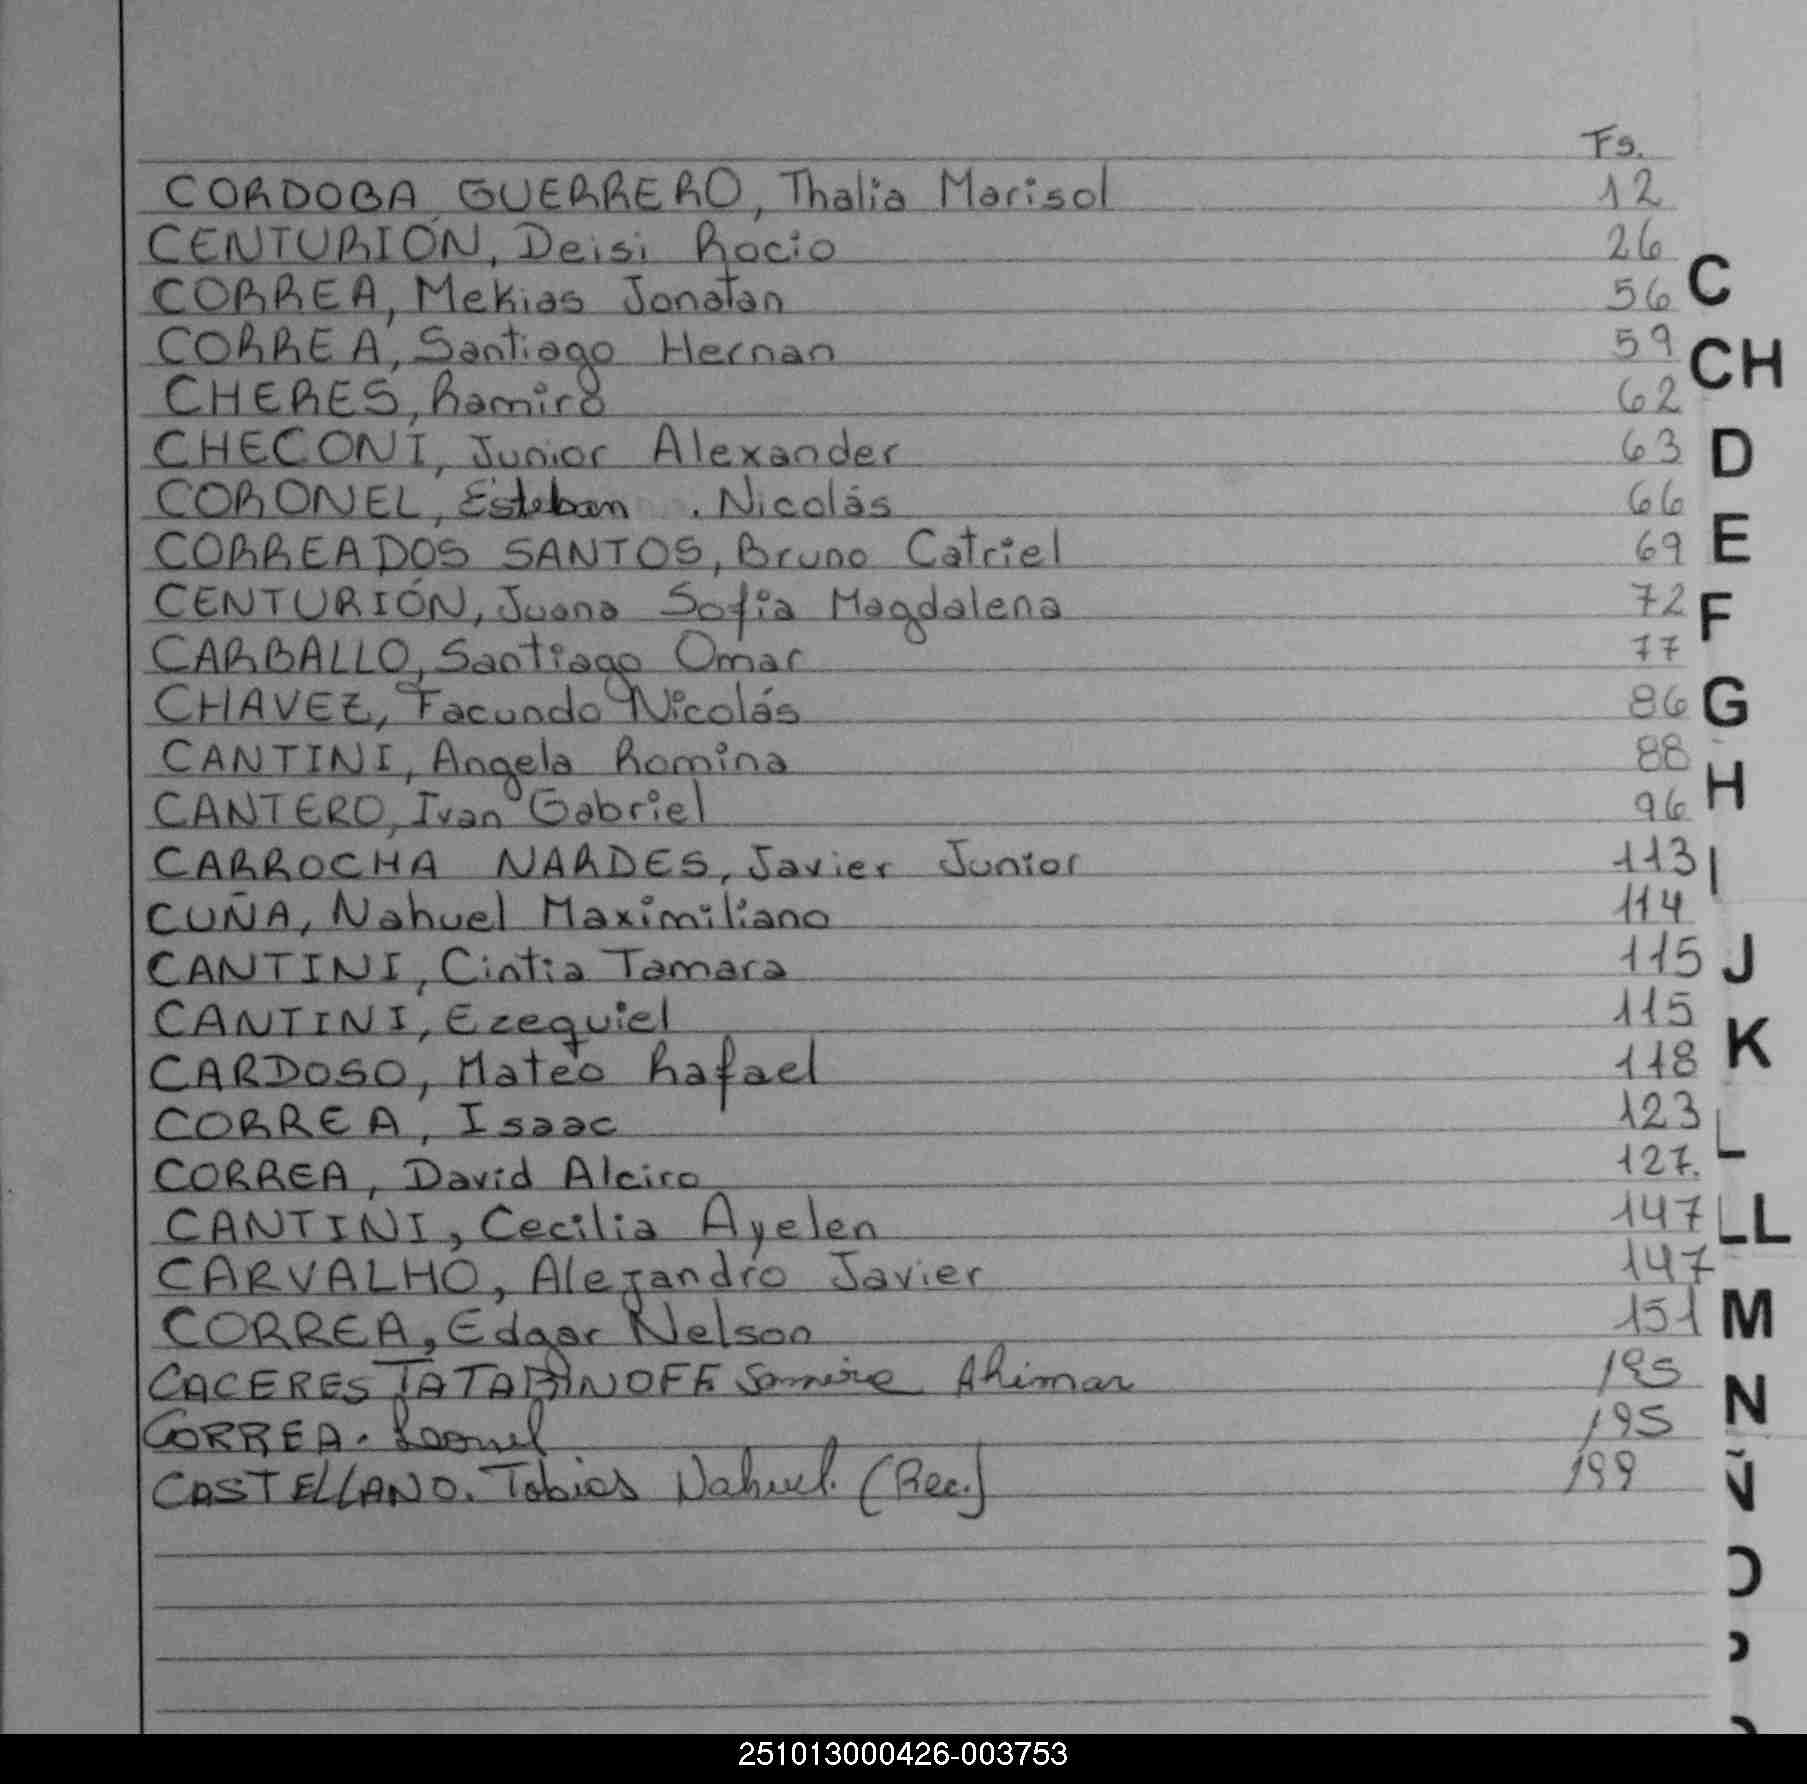 Fs.
CORDOBA GUERRERO, Thalia Marisol 12
CENTURIÓN, Deisi Rocio 26
CORREA, Mekias Jonatan 56
CORREA, Santiago Hernan 59
CHERES, Ramiro 62
CHECONI, Junior Alexander 63
CORONEL, Esteban . Nicolás 66
CORREA DOS SANTOS, Bruno Catriel 69
CENTURIÓN, Juana Sofia Magdalena 72
CARBALLO, Santiago Omar 77
CHAVEZ, Facundo Nicolás 86
CANTINI, Angela Romina 88
CANTERO, Ivan Gabriel 96
CARROCHA NARDES, Javier Junior 113
CUÑA, Nahuel Maximiliano 114
CANTINI, Cintia Tamara 115
CANTINI, Ezequiel 115
CARDOSO, Mateo Rafael 118
CORREA, Isaac 123
CORREA, David Alciro 127.
CANTINI, Cecilia Ayelen 147
CARVALHO, Alejandro Javier 147
CORREA, Edgar Nelson 151
CACERES Ahimar 195
CORREA. Leonel 195
CASTELLANO. Tobias Nahuel. (Rec.) 199
C
CH
D
E
F
G
H
I
J
K
L
LL
M
N
Ñ
O
P
251013000426-003753